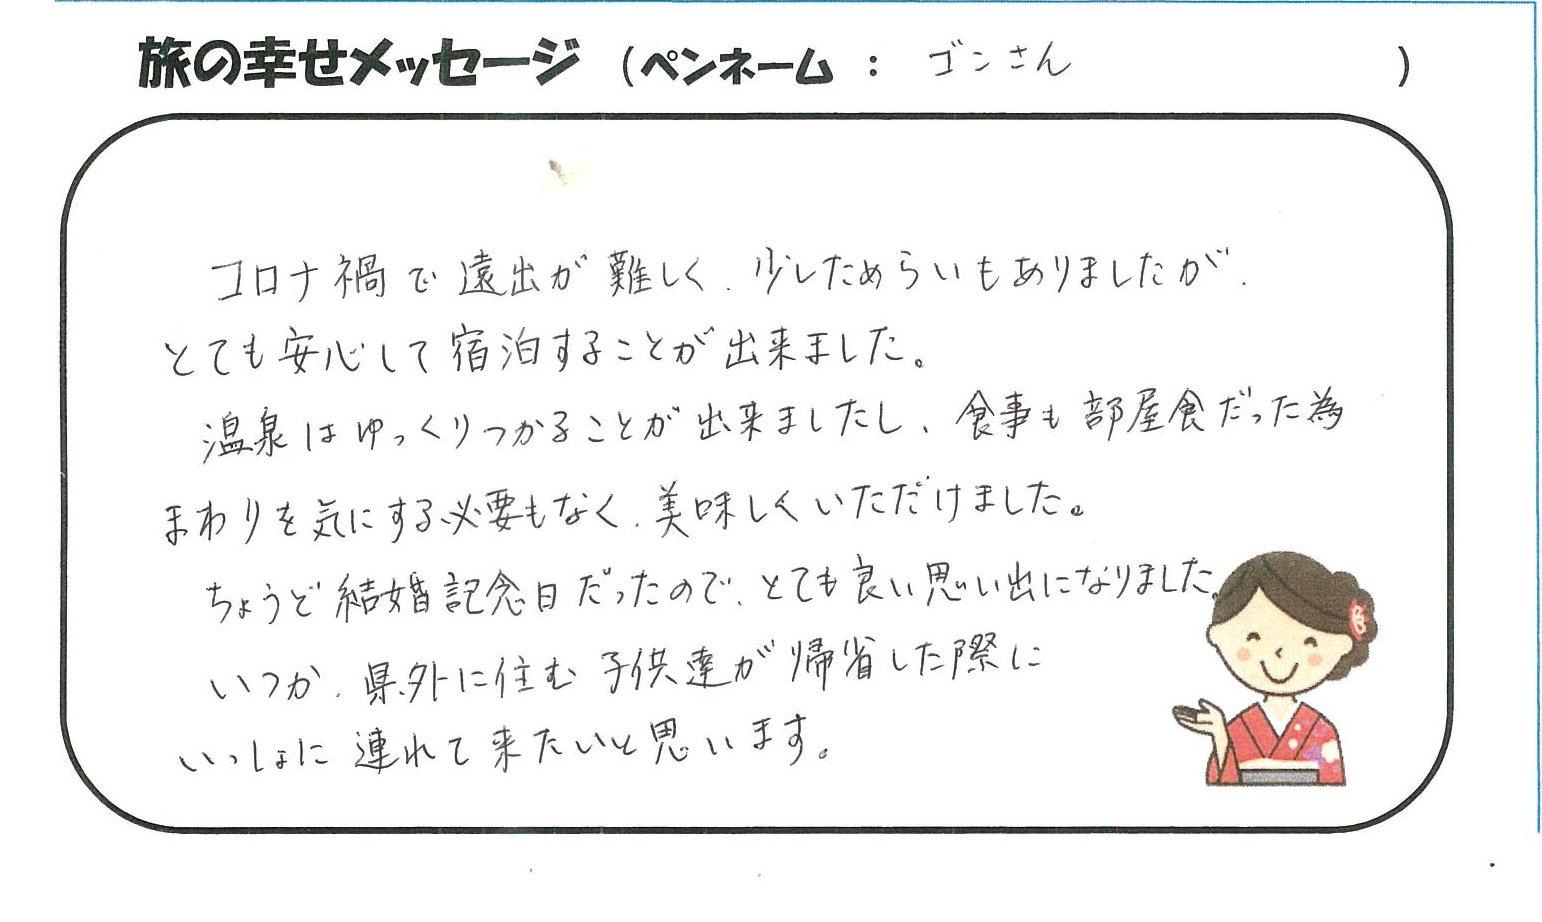 旅の幸せメッセージ (ペンネーム : ゴンさん )
コロナ禍で遠出が難しく、少しためらいもありましたが、
とても安心して宿泊することが出来ました。
温泉はゆっくりつかることが出来ましたし、食事も部屋食だった為
まわりを気にする必要もなく、美味しくいただけました。
ちょうど結婚記念日だったので、とても良い思い出になりました。
いつか、県外に住む子供達が帰省した際に
いっしょに連れて来たいと思います。